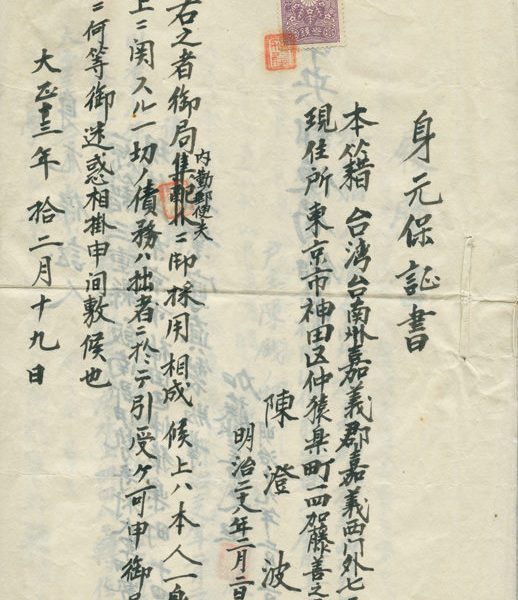 身元保証書
本籍 台湾台南州嘉義郡嘉義西門外七
現住所 東京市神田区仲猿楽町一四加藤善之
陳澄波
明治二十八年二月二日
右之者御局集配人ニ御採用相成候上ハ本人一身
内勤郵便夫
上ニ関スル一切ノ債務ハ拙者ニ於テ引受ケ可申御
ニ何等御迷惑相掛申间敷候也
大正十三年拾二月十九日